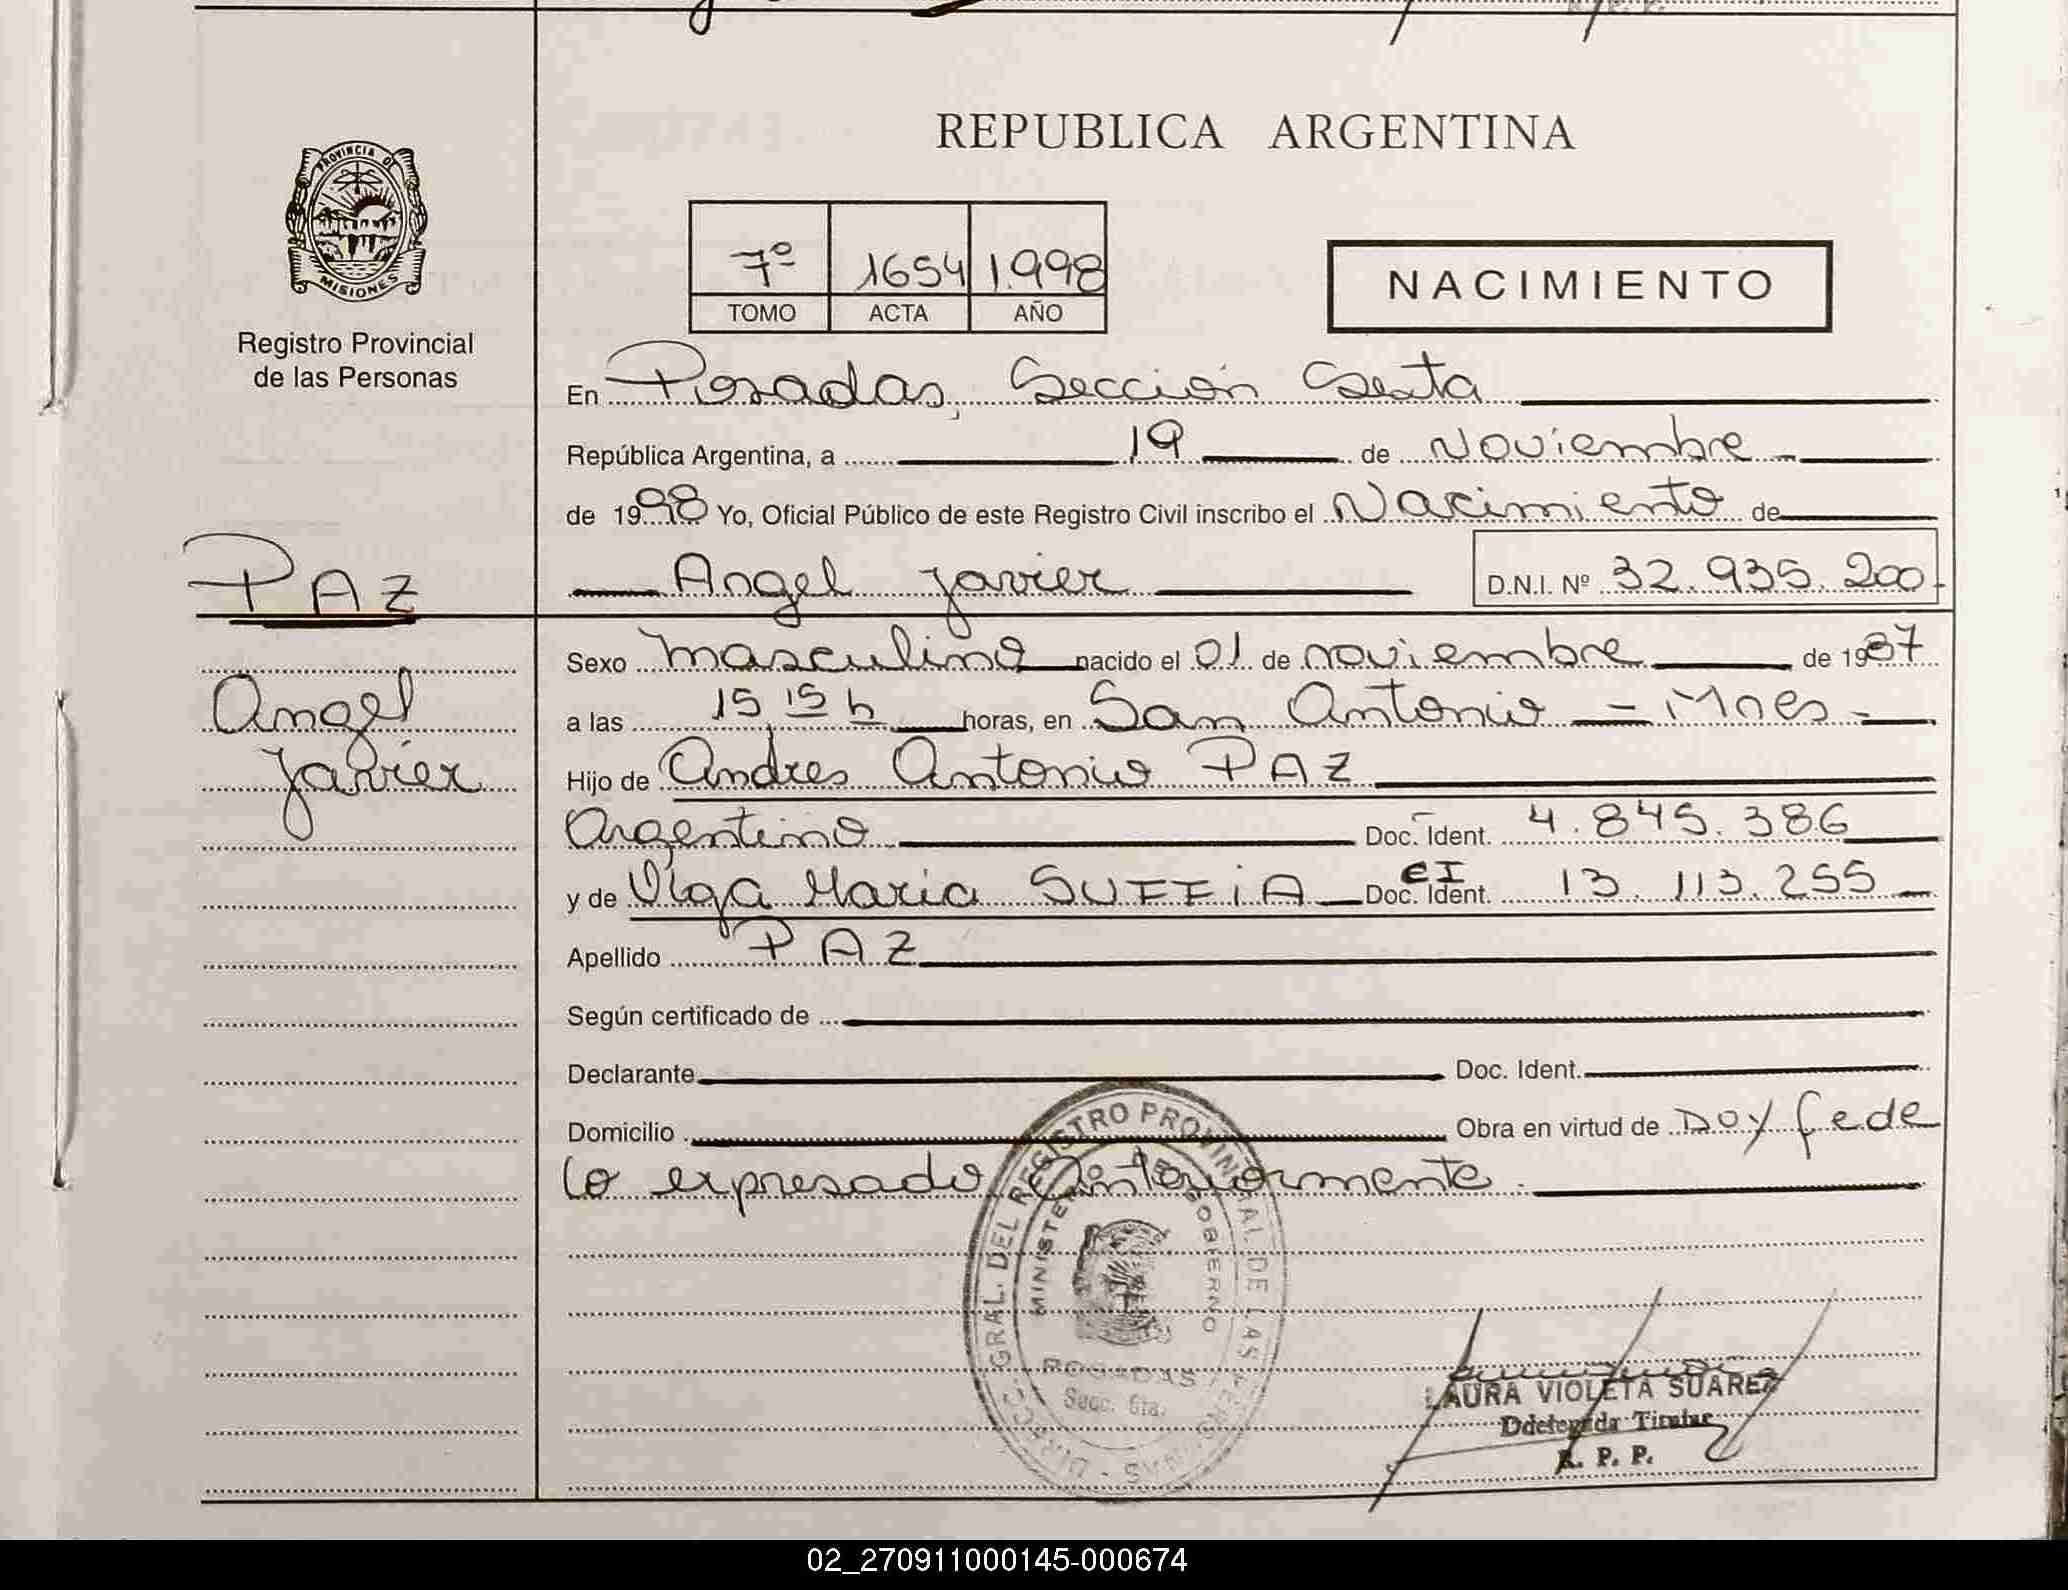 REPUBLICA ARGENTINA
PROVINCIA DE
MISIONES
Registro Provincial
de las Personas
7º 1654 1.998
TOMO ACTA AÑO
NACIMIENTO
En Posadas, Sección Sexta
República Argentina, a 19 de Noviembre
de 1998 Yo, Oficial Público de este Registro Civil inscribo el Nacimiento de
PAZ
Angel Javier D.N.I. Nº 32.935.200
Sexo masculino nacido el 01 de noviembre de 1987
Angel
a las 15 15 h horas, en San Antonio - Mnes -
Javier
Hijo de Andres Antonio PAZ
Argentino Doc. Ident. 4.845.386
y de Olga Maria SUFFIA CI Doc. Ident. 13.113.255
Apellido PAZ
Según certificado de
Declarante Doc. Ident.
Domicilio Obra en virtud de DOY fe de
lo expresado Anteriormente.
DIRECC. GRAL. DEL REGISTRO PROVINCIAL DE LAS PERSONAS
MINISTERIO DE GOBIERNO
POSADAS
Secc. 6ta.
LAURA VIOLETA SUAREZ
Ddelegada Titular
R. P. P.
02_270911000145-000674